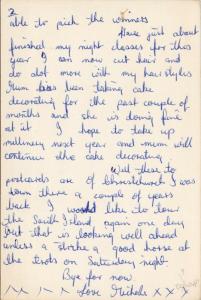 2
able to pick the winners
Have just about
finished my night classes for this
year I can now cut hair and
do alot more with my hairstyles
Mum has been taking cake
decorating for the past couple of
months and she is doing fine
at it I hope to take up
millinery next year and mum will
continue the cake decorating.
Well these
postcards are of Christchurch I was
down there a couple of years
back I would like to tour
the South Island again one day
but that is looking well ahead
unless I strike a good horse at
the trots on Saturday night.
Bye for now
Love Nichola X X X